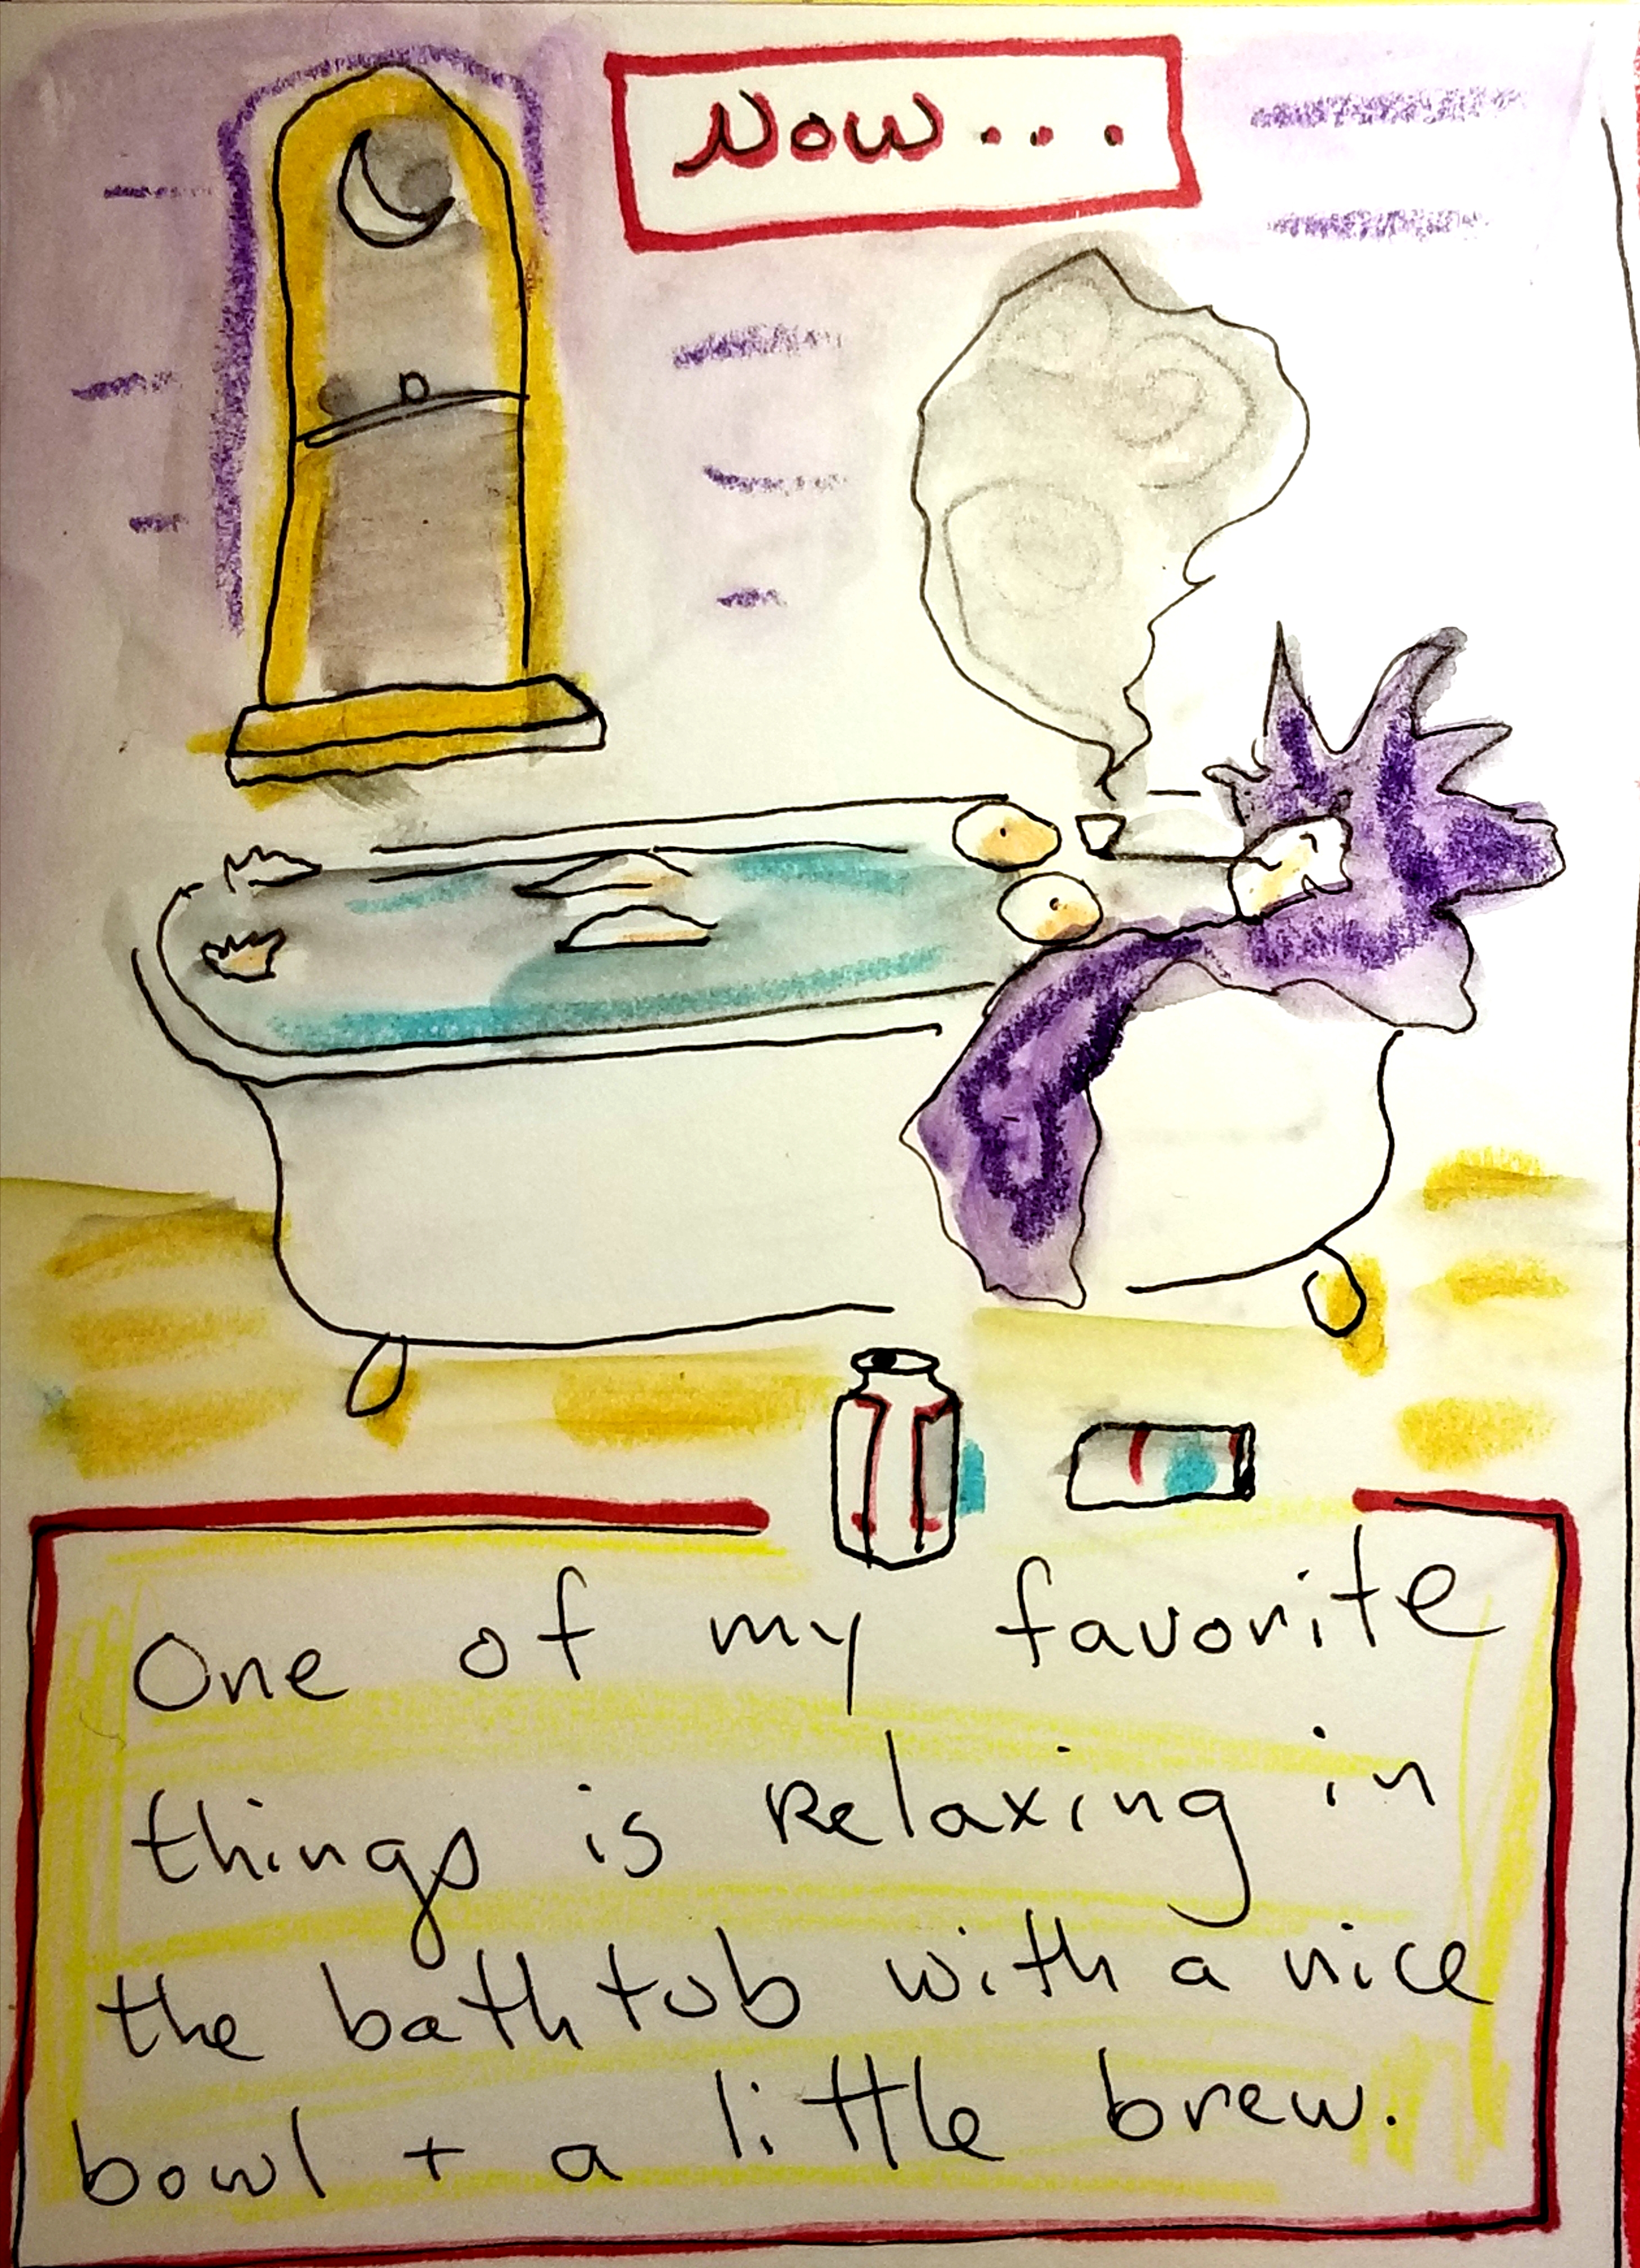 Now...
One of my favorite
things is Relaxing in
the bathtub with a nice
bowl + a little brew.